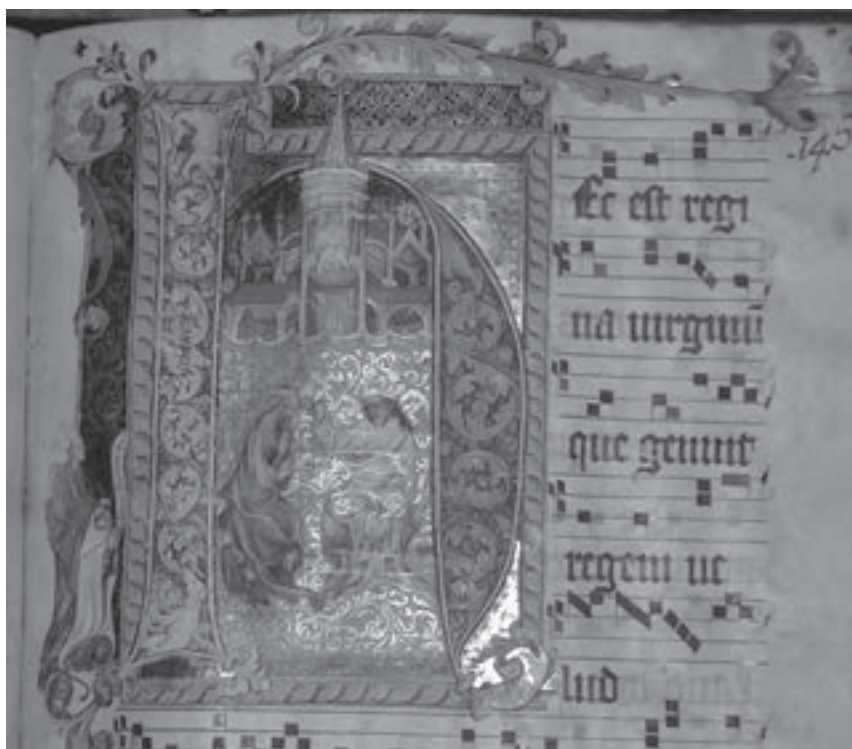 .145
HEc est regi
na uirginū
que genuit
regem ue
lud